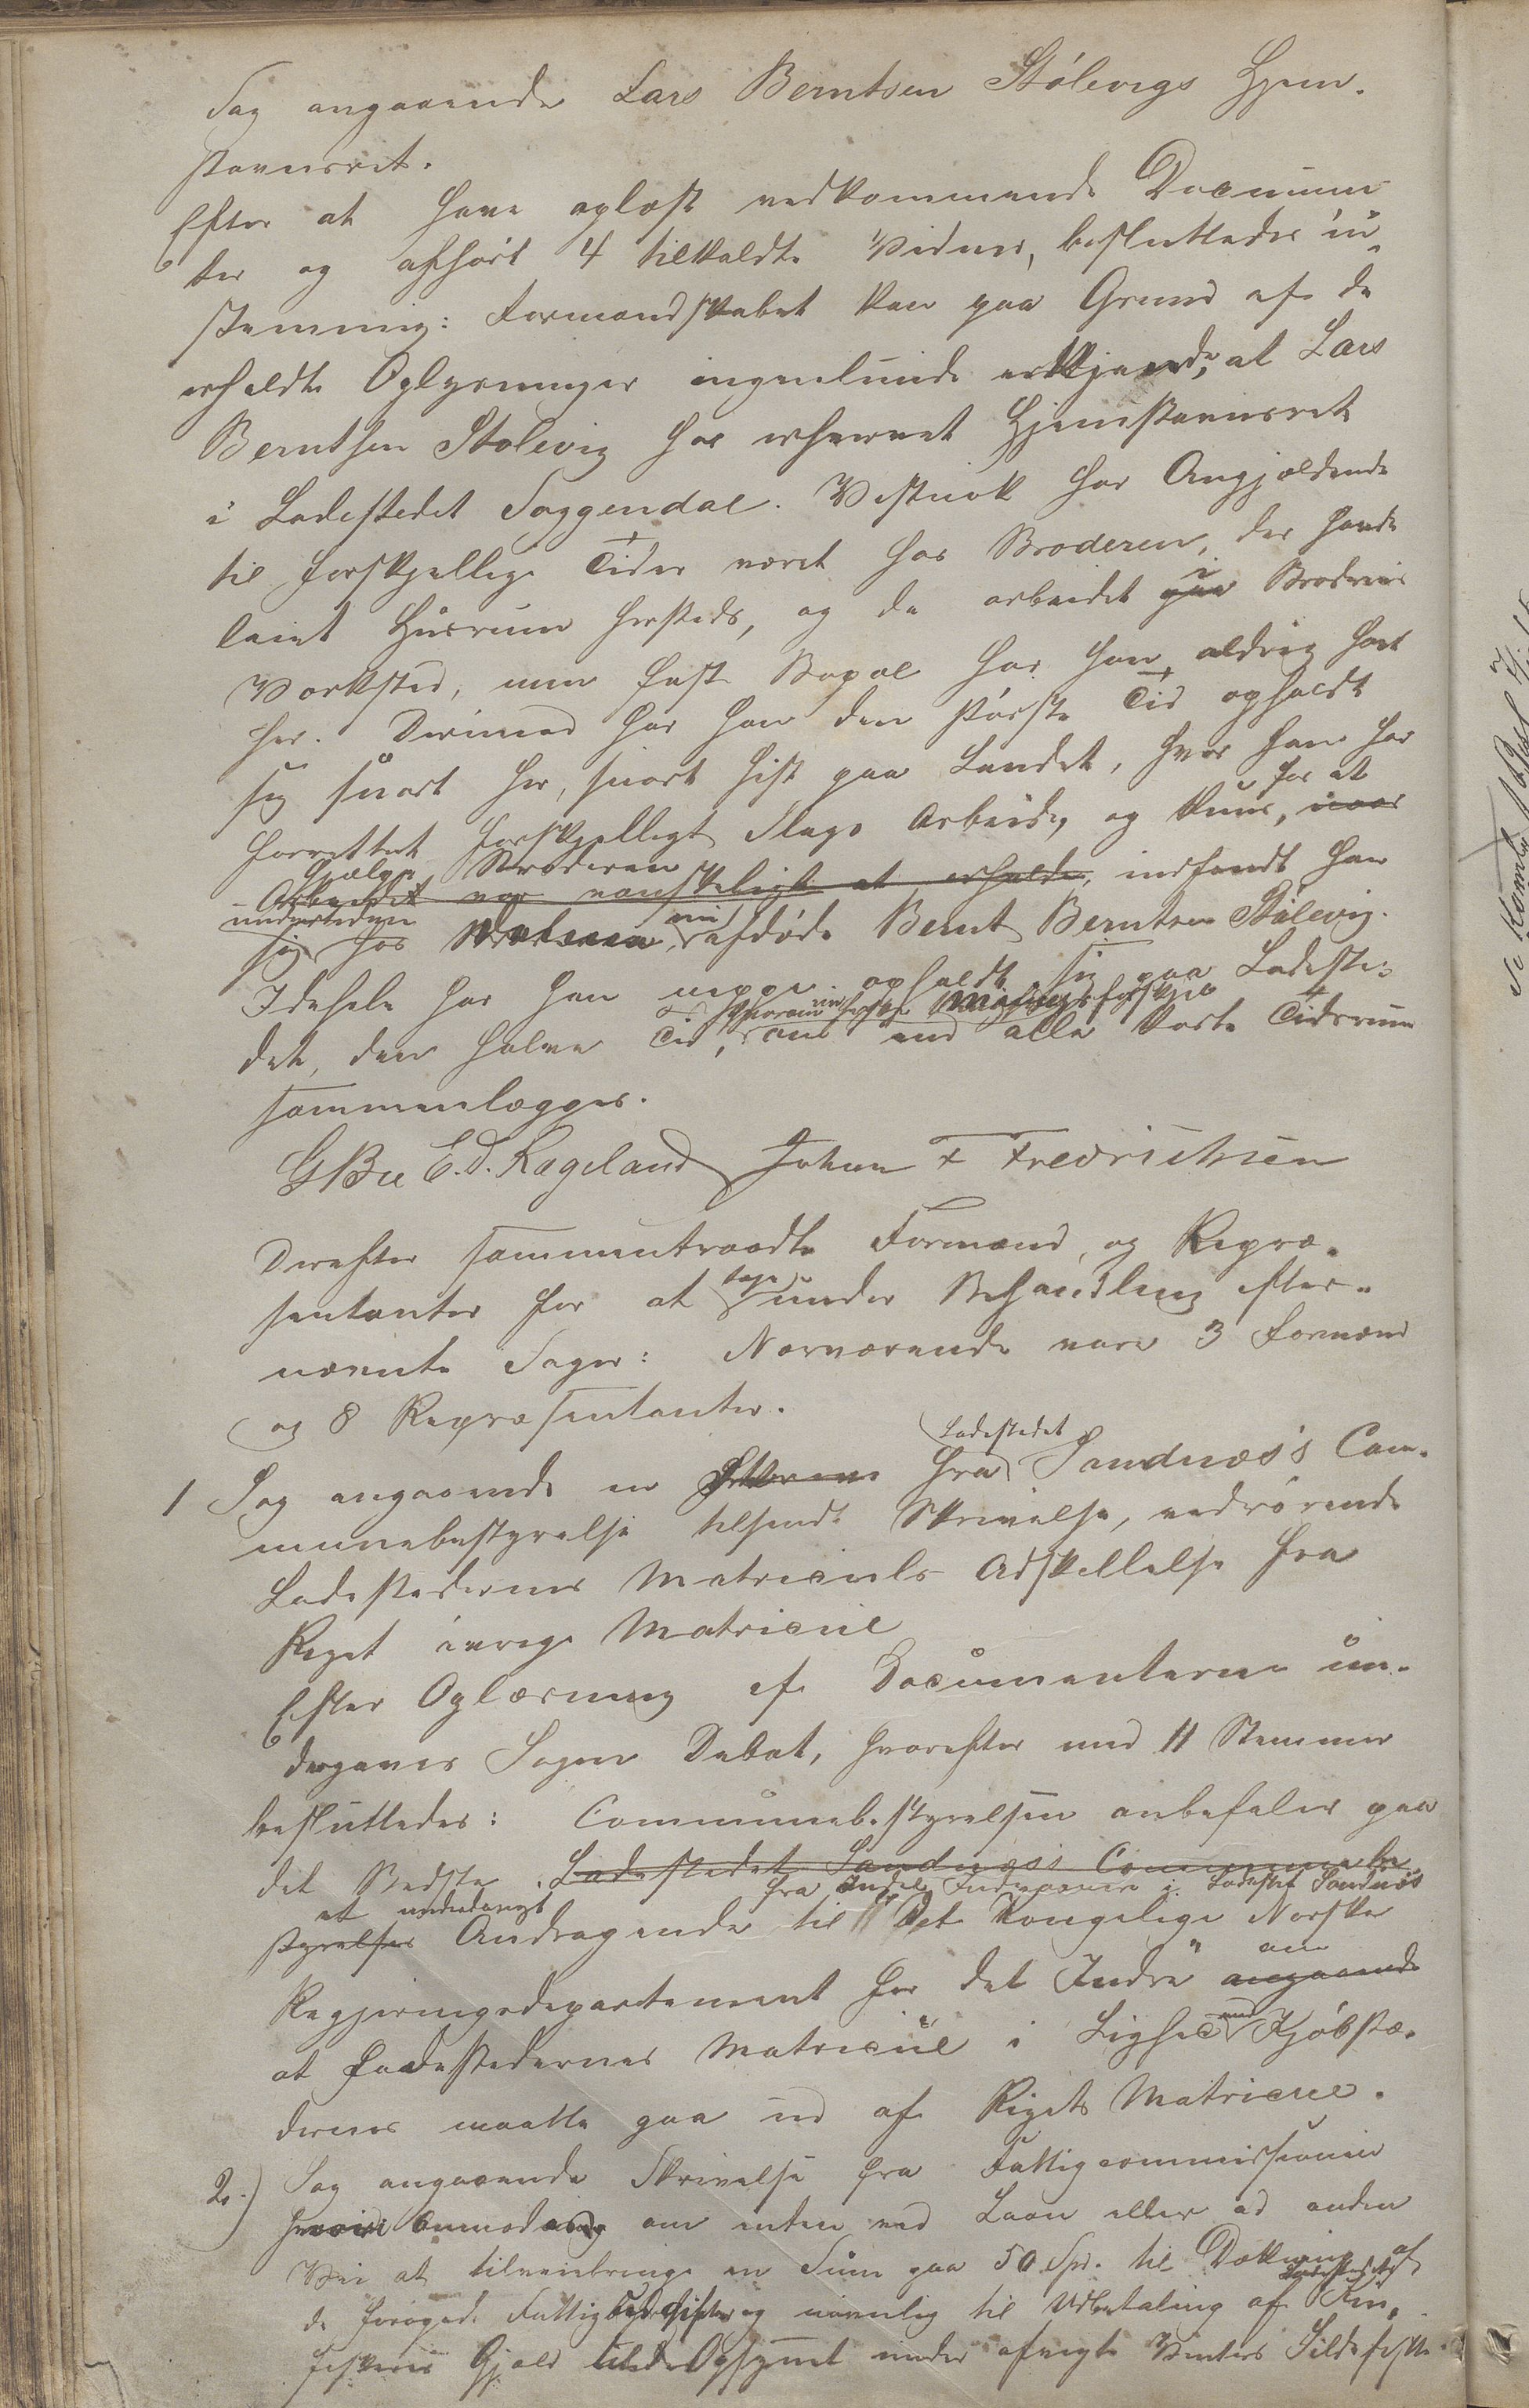 Sag angaaende Lars Berntsen Stölevigs Hjem-
stavnsret.
Efter at have oplæst vedkommende Documen-
ter og afhört 4 tilkaldte Vidner, besluttedes ün-
stemmig: Formandskabet kan paa Grund af de
erholdte Oplysninger ingenlunde erkjende, at Lars
Berntsen Stølevig har erhvervet Hjemstavnsret
i Ladestedet Soggendal. Vistnok har Angjældende
til forskjellige Tider været hos Broderen, der havde
leiet Huusrum hersteds, og da arbeidet paa i Broderens
Værksted, men fast Bopæl har han aldrig havt
her. Derimod har han den störste Tid opholdt
sig snart her, snart hist paa Landet, hvor han har
forrettet forskjelligt Slags Arbeide, og kuns, naar for at
hjælpe Broderen
Arbeidet var vanskeligt at erholde, indfandt han
undertiden
sig hos nu afdöde Bernt Berntsen Stölevig.
Idehele har han neppe opholdt sig paa Ladeste-
det, den halve Tid, om end alle korte Tidsrum
sammenlægges.
GBu E. D. Rageland Johan F Fredrichsen
Derefter sammentraadte Formænd og Repræ-
sentanter for at tage under Behandling efter-
nævnte Sager: Nærværende vare 3 Formænd
og 8 Repræsentanter.
1 Sag angaaende en fra Ladestedet Sandnæs's Com-
munebestyrelse tilsendt Skrivelse, vedrörende
Ladestedernes Matriculs Adskillelse fra
Riget övrige Matricul
Efter Oplæsning af Documenterne ün-
dergaves Sagen Debat, hvorefter med 11 Stemmer
besluttedes: Communebestyrelsen anbefaler paa
det Bedste Ladestedet Sandnæs's Communebe-
fra Indvaanere i Ladestet Sandnæs
styrelses et underdanigt Andragende til "Det Kongelige Norske
Regjeringsdepartement for det Indre" angaaende om
at Ladestedernes Matricul i Lighed med Kjöbstæ-
dernes maatte gaa ud af Rigets Matricul.
2.) Sag angaaende Skrivelse fra Fattigcommissionen
hvori anmodedes om enten ved Laan eller ad anden
Vei at tilveiebringe en Sum paa 50 Spd. til Dækning af
de forøgede Fattigudgifter og navnlig til Udbetaling af Ladestedets
fiskeris Gjæld til Opsynet under afvigte Vinters Sildefiske